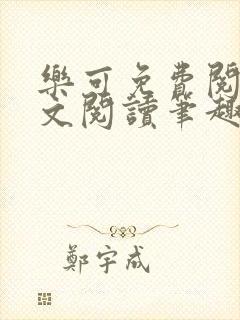 樂可免費閱
文閱讀筆趣
鄭宇成